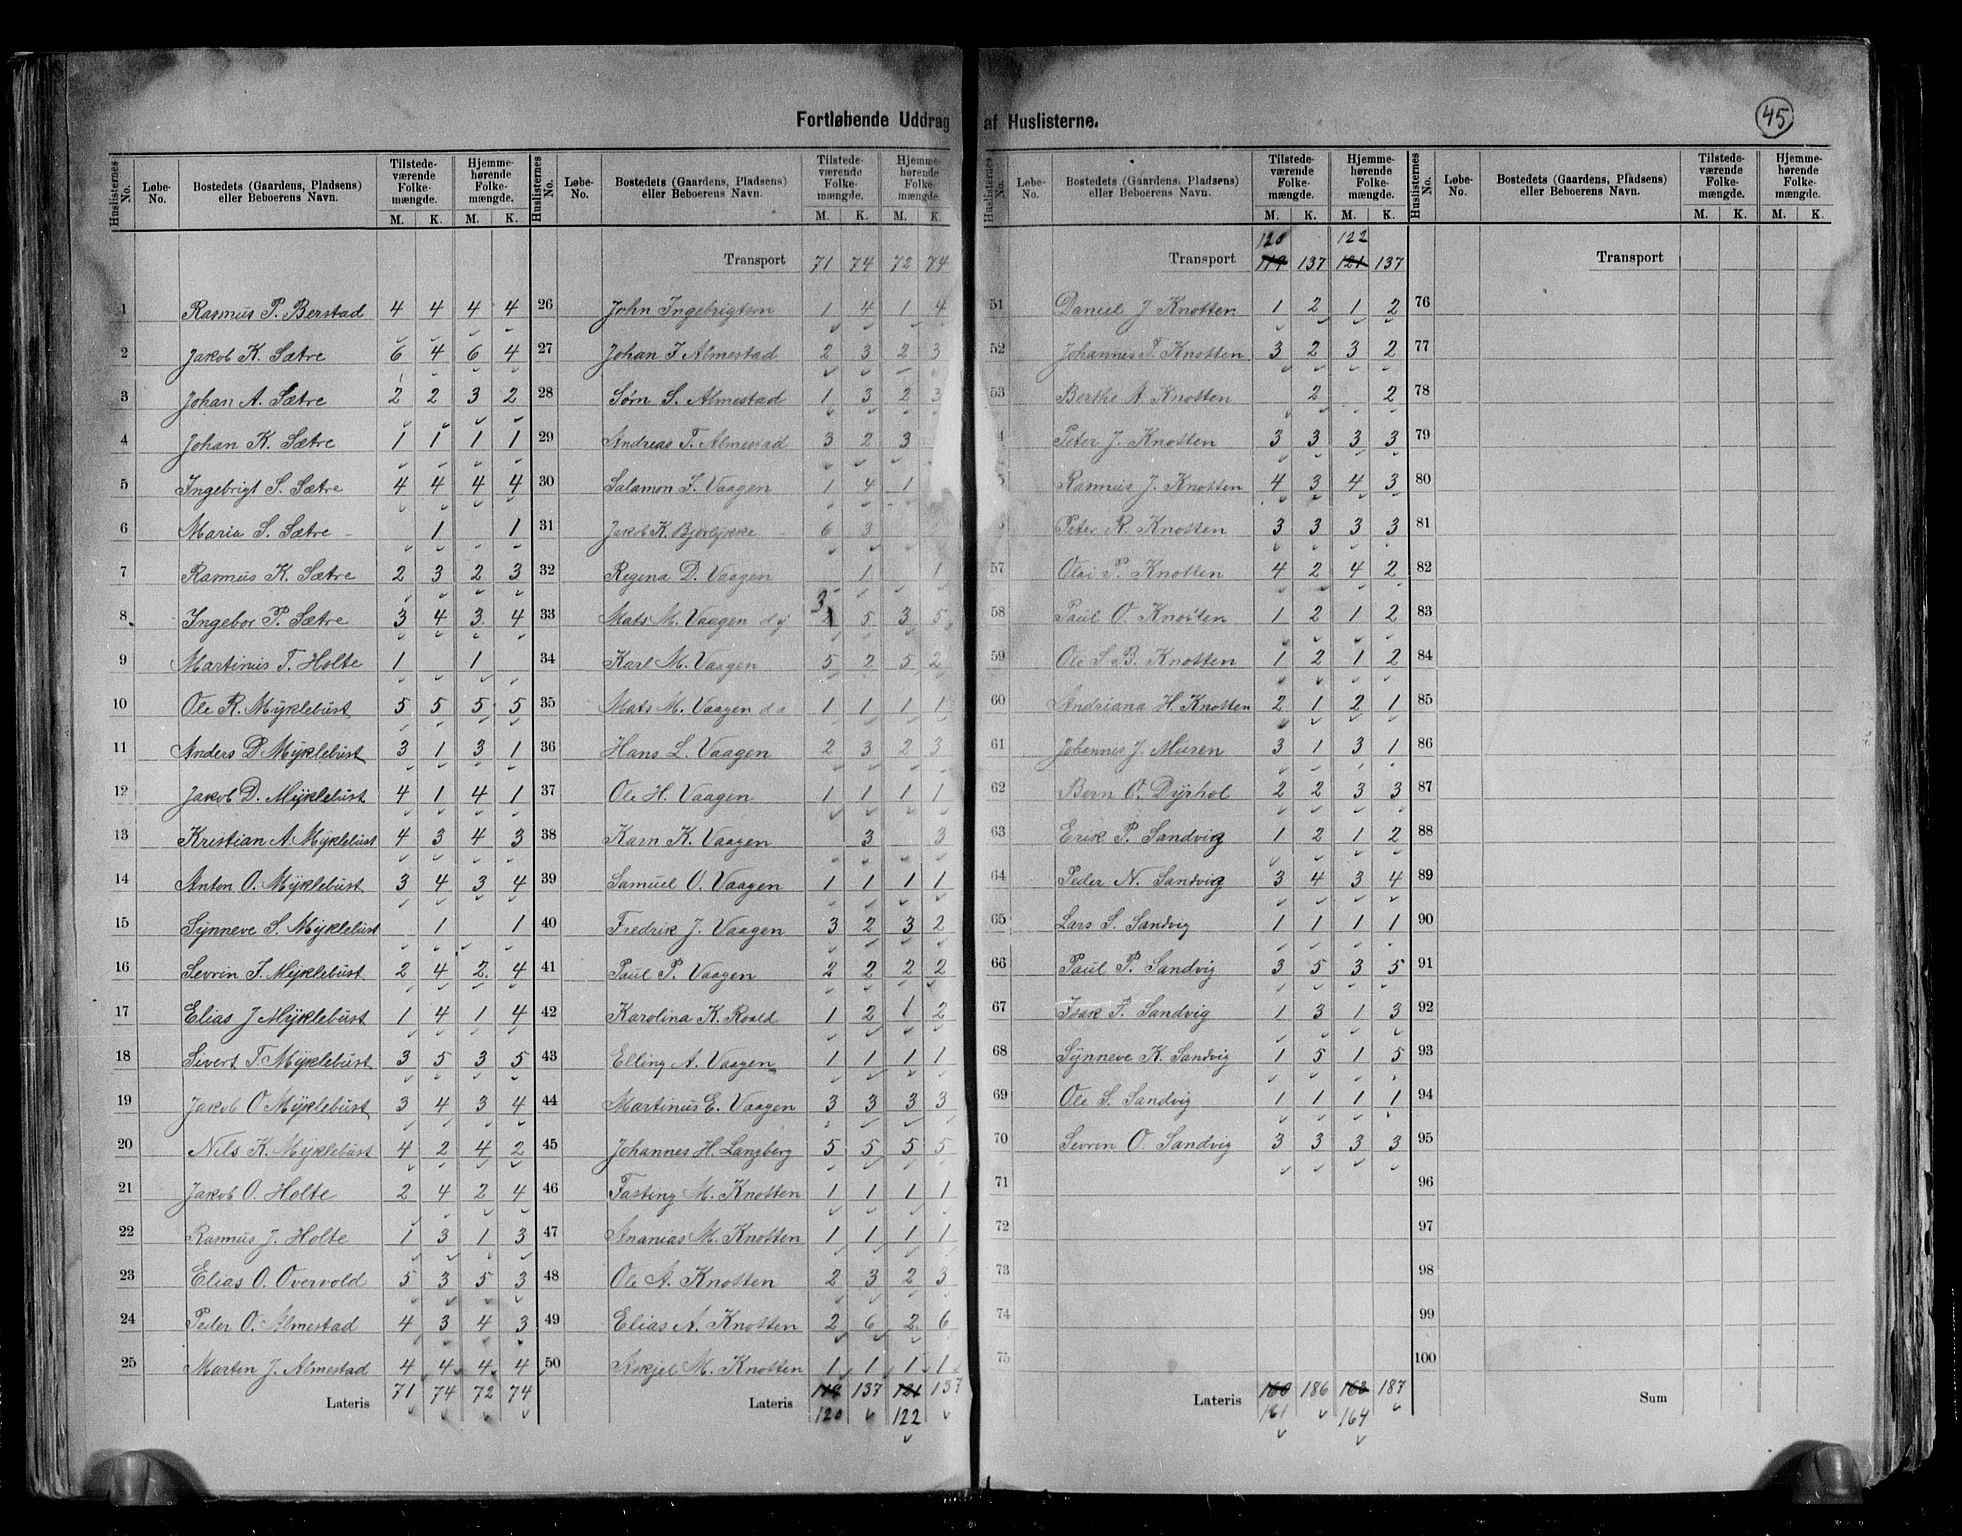 Fortløbende Uddrag af Huslisterne.
45
Huslisternes No. | Løbe-No. | Bostedets (Gaardens, Pladsens) eller Beboerens Navn. | Tilstedeværende Folkemængde. M. K. | Hjemmehørende Folkemængde. M. K.
1 Rasmus P. Berstad 4 4 4 4
2 Jakob K. Sætre 6 4 6 4
3 Johan A. Sætre 2 2 3 2
4 Johan K. Sætre 1 1 1 1
5 Ingebrigt S. Sætre 4 4 4 4
6 Maria S. Sætre 1 1
7 Rasmus K. Sætre 2 3 2 3
8 Ingebor P. Sætre 3 4 3 4
9 Martinus T. Holte 1 1
10 Ole R. Myklebust 5 5 5 5
11 Anders D Myklebust 3 1 3 1
12 Jakob D. Myklebust 4 1 4 1
13 Kristian A. Myklebust 4 3 4 3
14 Anton O. Myklebust 3 4 3 4
15 Synneve S. Myklebust 1 1
16 Sevrin J. Myklebust 2 4 2 4
17 Elias J Myklebust 1 4 1 4
18 Sivert T. Myklebust 3 5 3 5
19 Jakob O Myklebust 3 4 3 4
20 Nils K. Myklebust 4 2 4 2
21 Jakob O. Holte 2 4 2 4
22 Rasmus J. Holte 1 3 1 3
23 Elias O. Overvold 5 3 5 3
24 Peder O. Almestad 4 3 4 3
25 Martin J. Almestad 4 4 4 4
Lateris 71 74 72 74
Huslisternes No. | Løbe-No. | Bostedets (Gaardens, Pladsens) eller Beboerens Navn. | Tilstedeværende Folkemængde. M. K. | Hjemmehørende Folkemængde. M. K.
Transport 71 74 72 74
26 John Ingebrigtson 1 4 1 4
27 Johan J. Almestad 2 3 2 3
28 Sørn S. Almestad 1 3 2 3
29 Andreas T. Almestad 3 2 3
30 Salamon J. Vaagen 1 4 1
31 Jakob K. Bjørlykke 6 3
32 Regena D. Vaagen 1 1
33 Mats M. Vaagen d y 3 5 3 5
34 Karl M. Vaagen 5 2 5 2
35 Mats M. Vaagen d æ 1 1 1 1
36 Hans L. Vaagen 2 3 2 3
37 Ole H. Vaagen 1 1 1 1
38 Karn K. Vaagen 3 3
39 Samuel O. Vaagen 1 1 1 1
40 Fredrik J. Vaagen 3 2 3 2
41 Paul P. Vaagen 2 2 2 2
42 Karolina K. Roald 1 2 1 2
43 Elling A. Vaagen 1 1 1 1
44 Martinus E. Vaagen 3 3 3 3
45 Johannes H. Langberg 5 5 5 5
46 Fasting M. Knotten 1 1 1 1
47 Ananias M. Knotten 1 1 1 1
48 Ole A. Knotten 2 3 2 3
49 Elias A. Knotten 2 6 2 6
50 Askjel M. Knotten 1 1 1 1
Lateris 119 137 121 137
120 122
Huslisternes No. | Løbe-No. | Bostedets (Gaardens, Pladsens) eller Beboerens Navn. | Tilstedeværende Folkemængde. M. K. | Hjemmehørende Folkemængde. M. K.
120 122
Transport 119 137 121 137
51 Daniel J Knotten 1 2 1 2
52 Johannes P. Knotten 3 2 3 2
53 Berthe A. Knotten 2 2
4 Peter J. Knotten 3 3 3 3
5 Rasmus J. Knotten 4 3 4 3
Peter R. Knotten 3 3 3 3
57 Olai P. Knotten 4 2 4 2
58 Paul O. Knotten 1 2 1 2
59 Ole S. B. Knotten 1 2 1 2
60 Andriana H. Knotten 2 1 2 1
61 Johannes J. Muren 3 1 3 1
62 Bern O. Dyrhol 2 2 3 3
63 Erik P. Sandvig 1 2 1 2
64 Peder N. Sandvig 3 4 3 4
65 Lars S. Sandvig 1 1 1 1
66 Paul P. Sandvig 3 5 3 5
67 Isak P. Sandvig 1 3 1 3
68 Synneve K. Sandvig 1 5 1 5
69 Ole S. Sandvig 1 1 1 1
70 Sevrin O. Sandvig 3 3 3 3
71
72
73
74
75
Lateris 160 186 163 187
161 164
Huslisternes No. | Løbe-No. | Bostedets (Gaardens, Pladsens) eller Beboerens Navn. | Tilstedeværende Folkemængde. M. K. | Hjemmehørende Folkemængde. M. K.
Transport
76
77
78
79
80
81
82
83
84
85
86
87
88
89
90
91
92
93
94
95
96
97
98
99
100
Sum